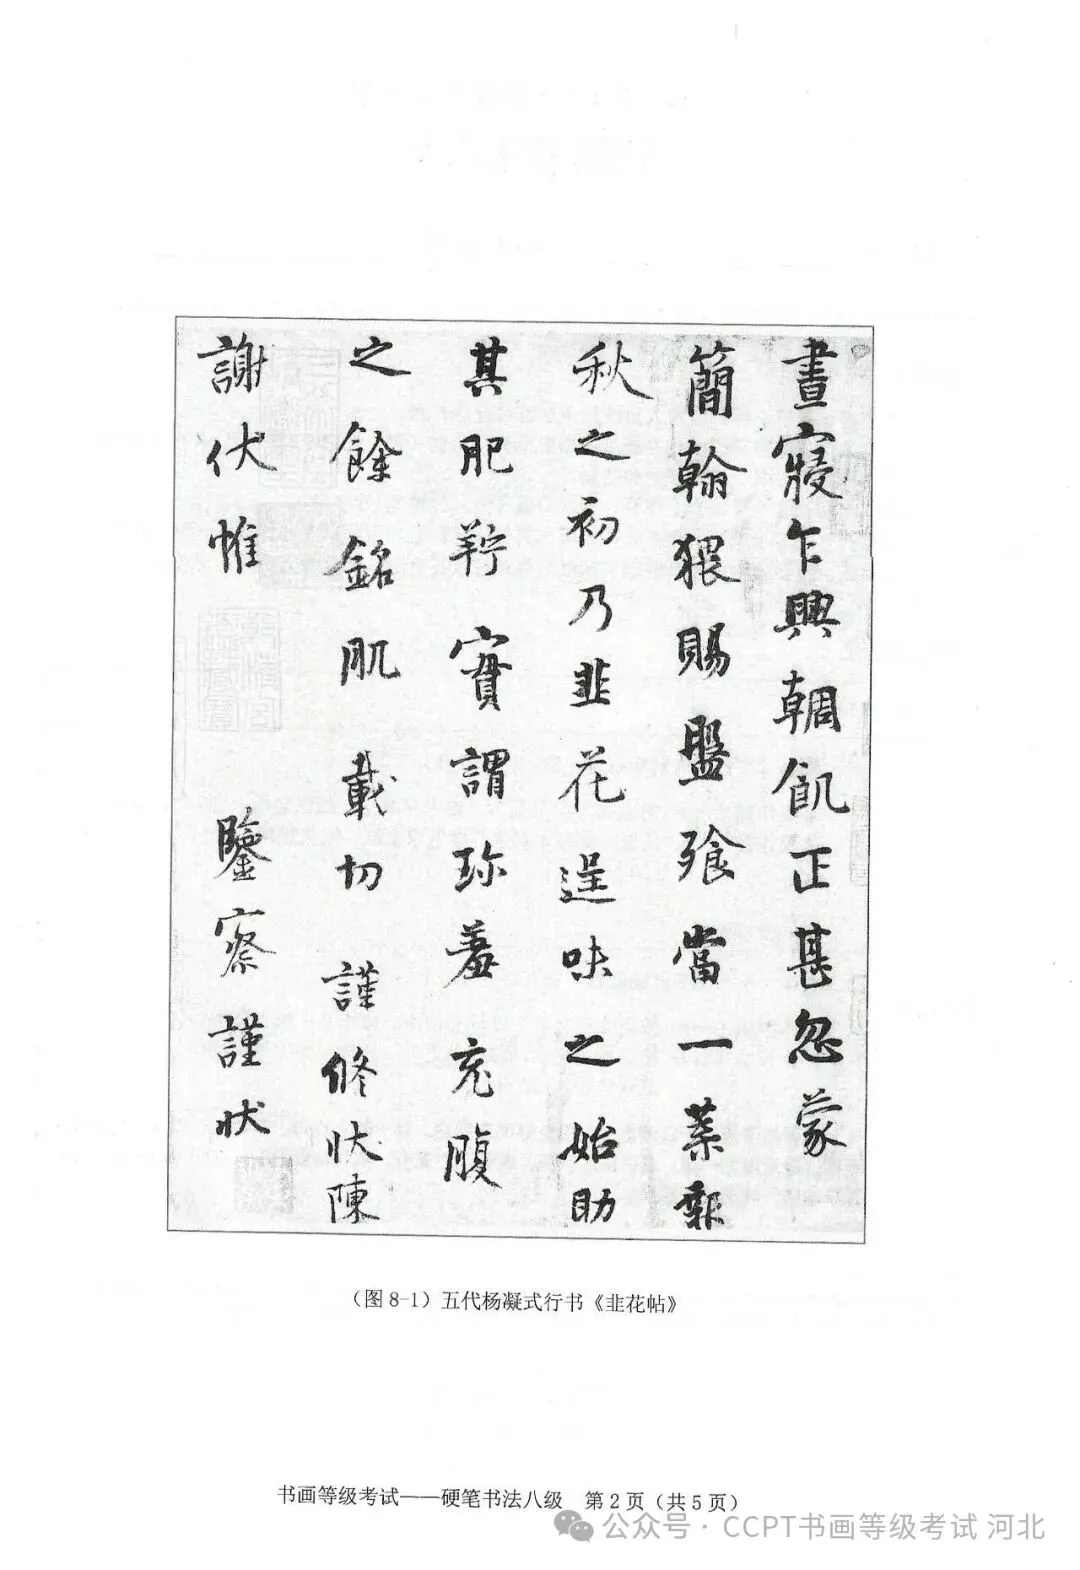 晝寢乍興輖飢正甚忽蒙
簡翰猥賜盤飧當一葉報
秋之初乃韭花逞味之始助
其肥羜實謂珍羞充腹
之餘銘肌載切謹修狀陳
謝伏惟鑒察謹狀
（图 8-1）五代杨凝式行书《韭花帖》
书画等级考试——硬笔书法八级 第 2 页（共 5 页）
公众号·CCPT书画等级考试 河北